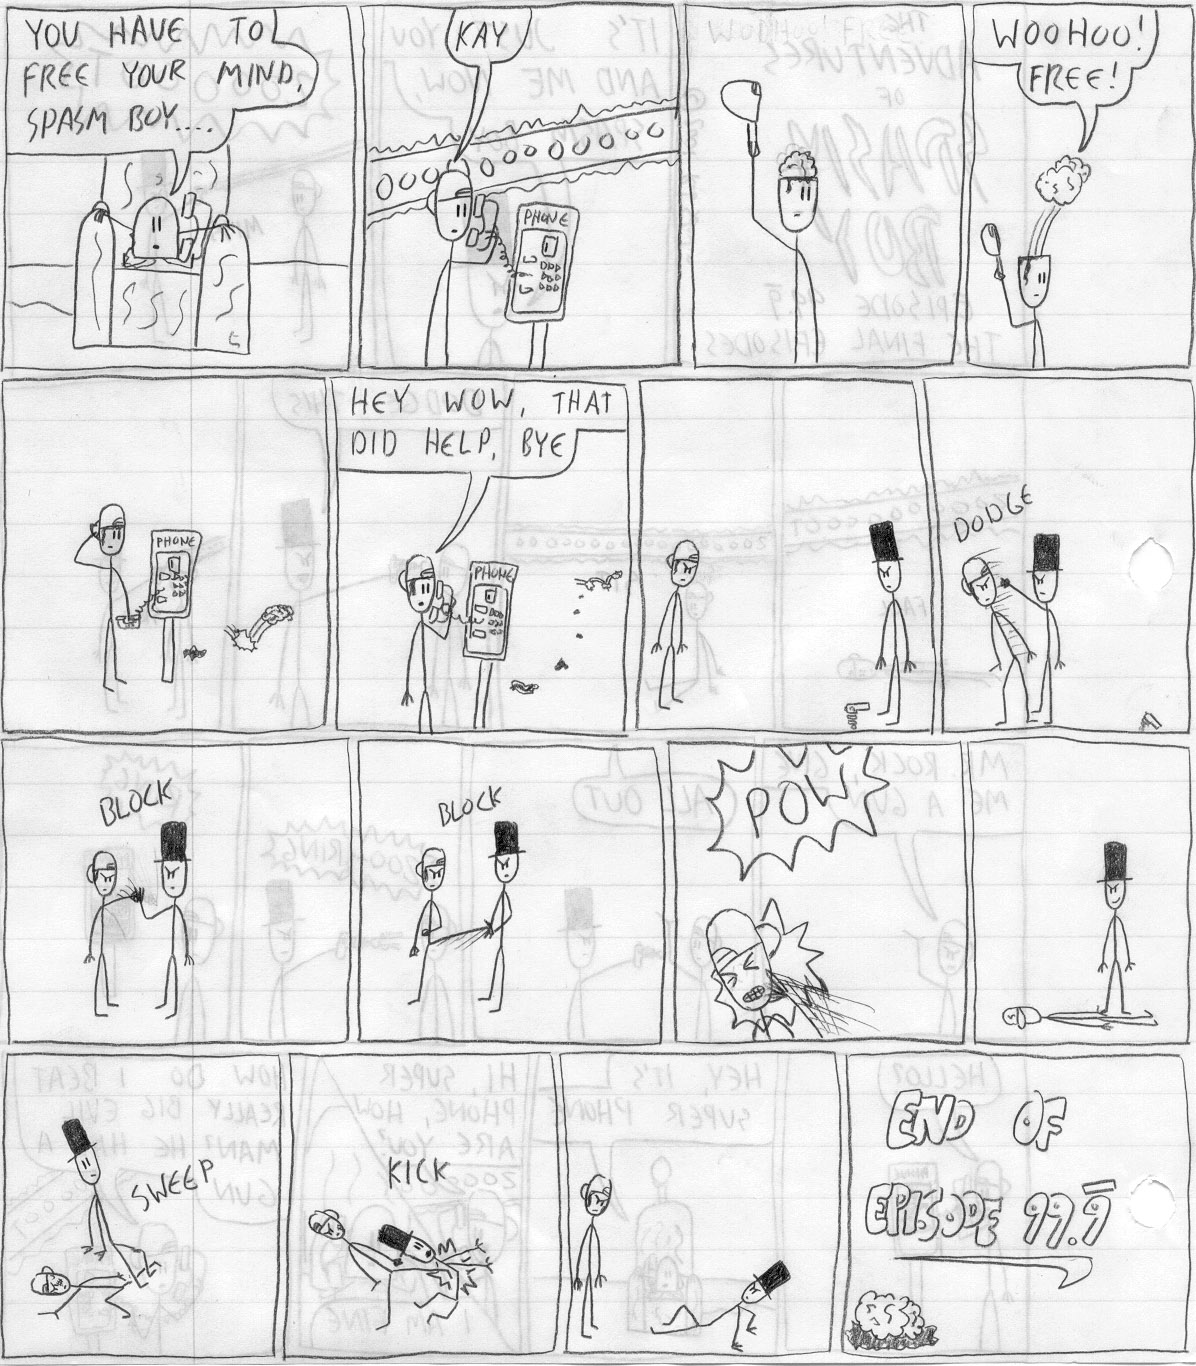 YOU HAVE TO
FREE YOUR MIND,
SPASM BOY....
KAY
PHONE
WOOHOO!
FREE!
PHONE
HEY WOW, THAT
DID HELP, BYE
PHONE
DODGE
BLOCK
BLOCK
POW
SWEEP
KICK
END OF
EPISODE 99.9̅